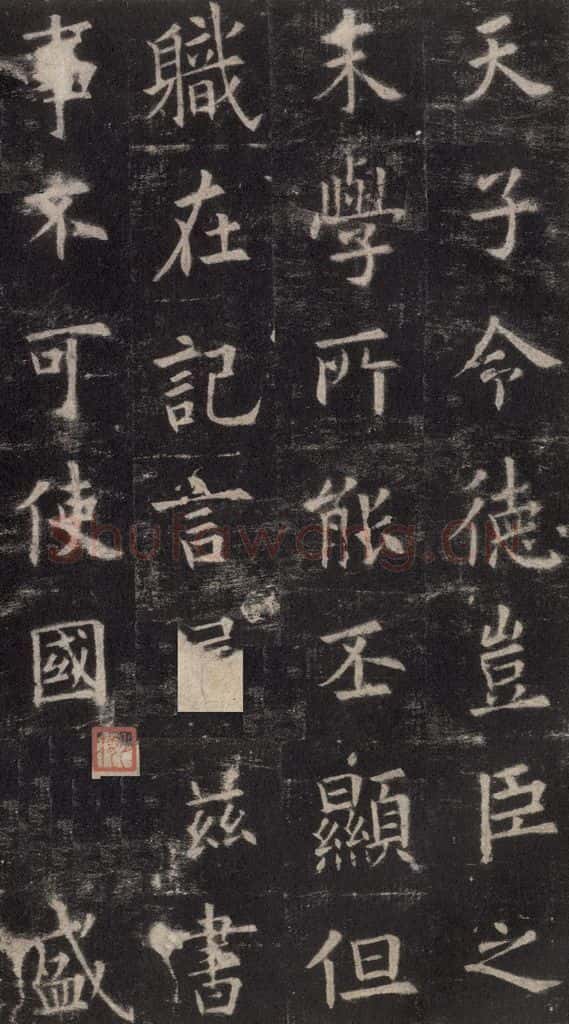 天子令德豈臣之
末學所能丕顯但
職在記言茲書
事不可使國盛
shufawang.cn